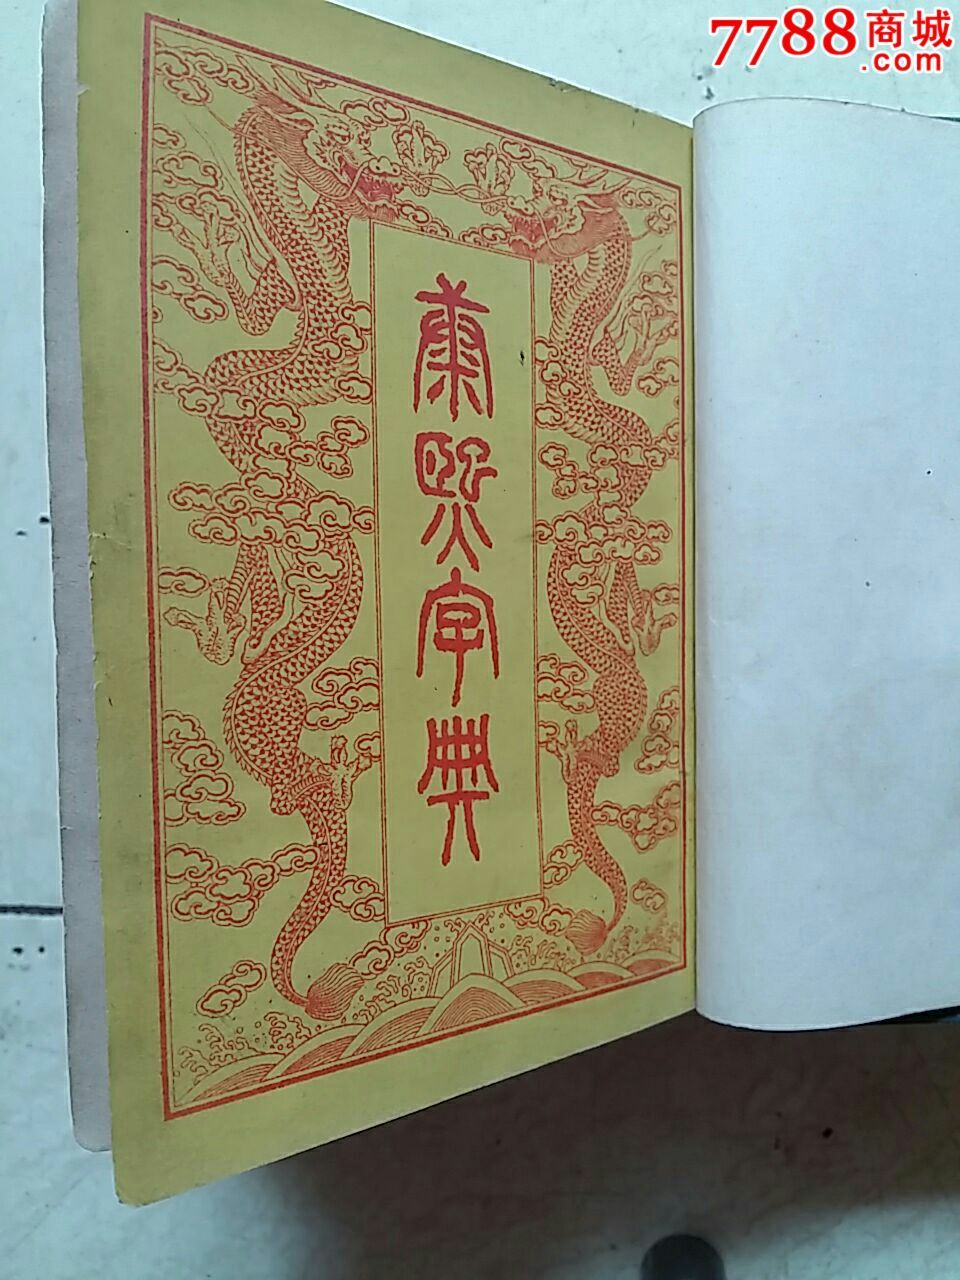 7788商城
.com
康熙字典